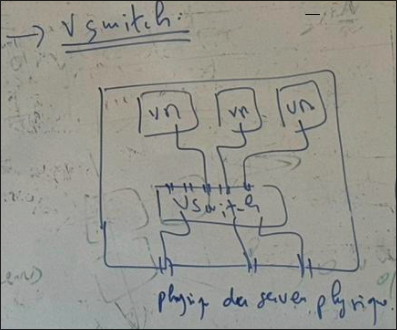 → Vswitch:
VM VM VM
VSwitch
physique du server physique.